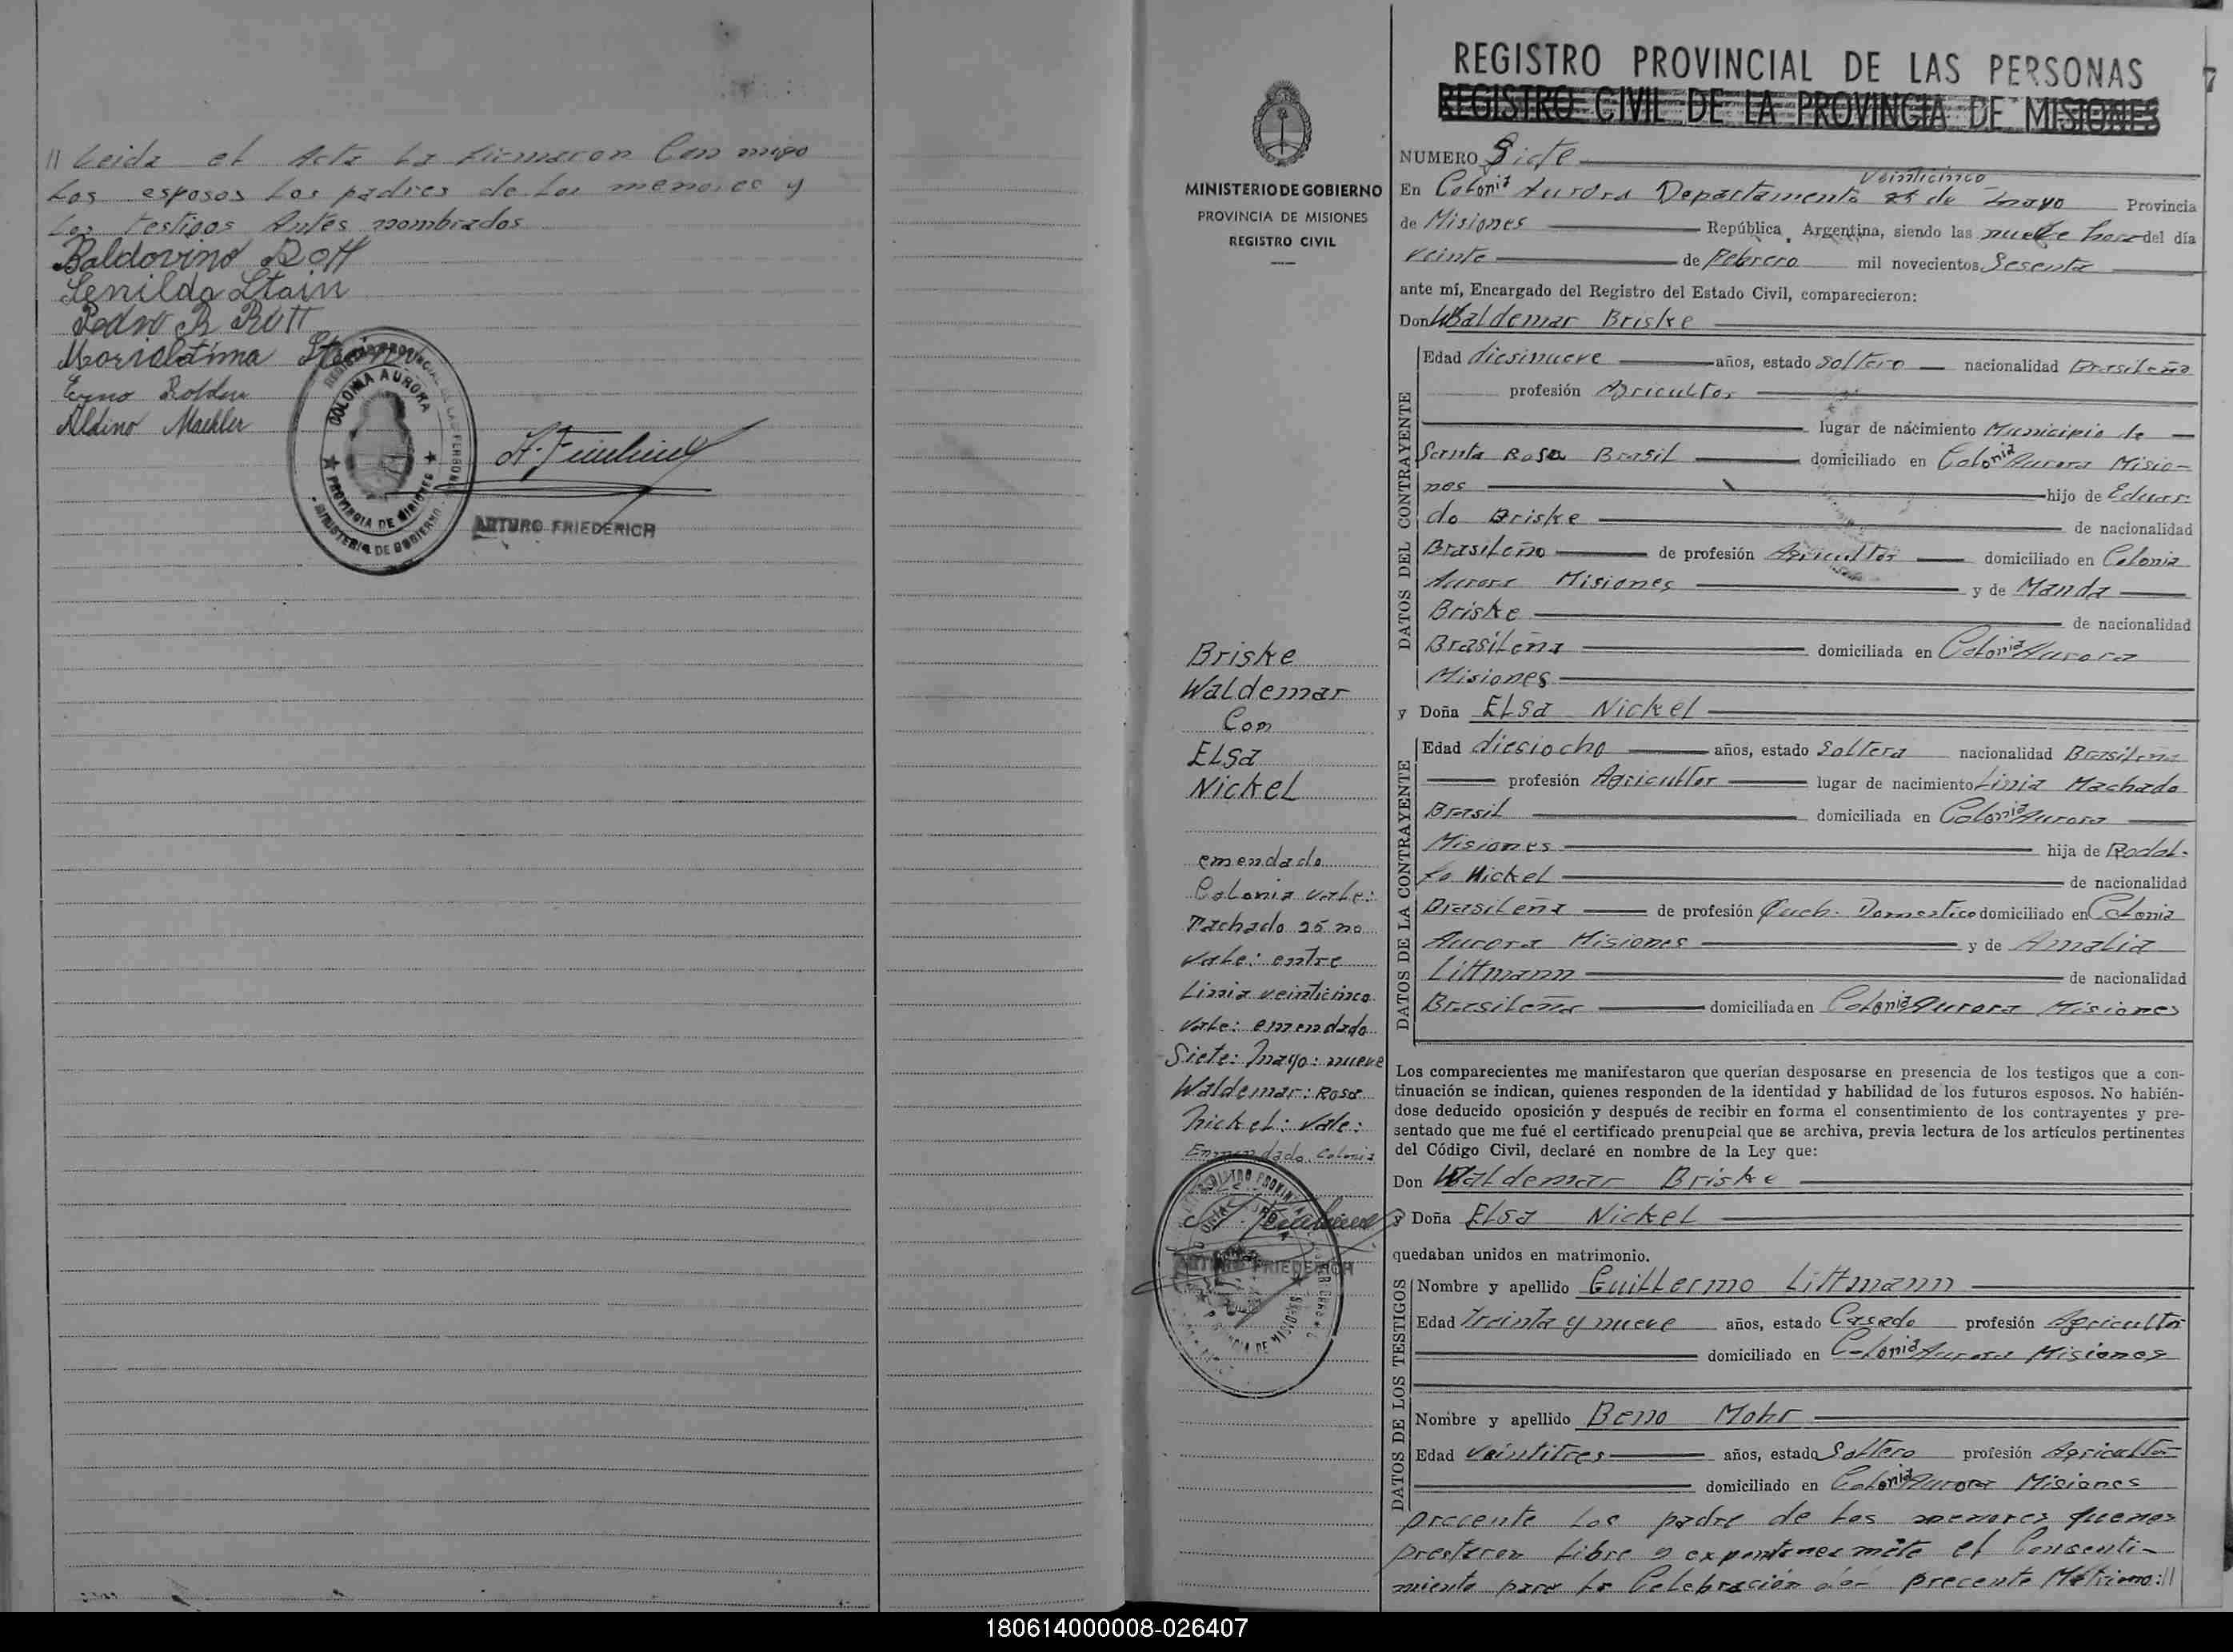 || Leida el Acta La Firmaron Con migo
Los esposos Los padres de Los menores y
Los testigos Antes nombrados
Baldovino Rott
Senilda Stain
Pedro R Rott
Maria Stain
Erno
Aldino Maehler
REGISTRO PROVINCIAL DE LAS PERSONAS
COLONIA AURORA
PROVINCIA DE MISIONES
MINISTERIO DE GOBIERNO
ARTURO FRIEDERICH
MINISTERIO DE GOBIERNO
PROVINCIA DE MISIONES
REGISTRO CIVIL
Briske
Waldemar
Con
ELSa
NickeL
emendado
Colonia vale:
Machado 25 no
vale: entre
Linia veinticinco
vale: emendado
Siete: mayo: nueve
Waldemar: Rosa
Nickel: vale:
Emmendado Colonia
ARTURO FRIEDERICH
REGISTRO PROVINCIAL DE LAS PERSONAS
7
REGISTRO CIVIL DE LA PROVINCIA DE MISIONES
NUMERO Siete
veinticinco
En Colonia Aurora Departamento 25 de mayo Provincia
de Misiones República Argentina, siendo las nueve horas del día
veinte de Febrero mil novecientos Sesenta
ante mí, Encargado del Registro del Estado Civil, comparecieron:
Don Waldemar Briske
DATOS DEL CONTRAYENTE
Edad diesinueve años, estado soltero nacionalidad Brasileño
profesión Agricultor
lugar de nacimiento Municipio de
Santa Rosa Brasil domiciliado en Colonia Aurora Misio-
nes hijo de Eduar-
do Briske de nacionalidad
Brasileño de profesión Agricultor domiciliado en Colonia
Aurora Misiones y de Manda
Briske de nacionalidad
Brasileña domiciliada en Colonia Aurora
Misiones
y Doña ELSa Nickel
DATOS DE LA CONTRAYENTE
Edad diesiocho años, estado Soltera nacionalidad Brasileña
profesión Agricultor lugar de nacimiento Linia Machado
Brasil domiciliada en Colonia Aurora
Misiones hija de Rodol-
fo Nickel de nacionalidad
Brasileña de profesión Queh. Domestico domiciliado en Colonia
Aurora Misiones y de Amalia
Littmann de nacionalidad
Brasileña domiciliada en Colonia Aurora Misiones
Los comparecientes me manifestaron que querían desposarse en presencia de los testigos que a con-
tinuación se indican, quienes responden de la identidad y habilidad de los futuros esposos. No habién-
dose deducido oposición y después de recibir en forma el consentimiento de los contrayentes y pre-
sentado que me fué el certificado prenupcial que se archiva, previa lectura de los artículos pertinentes
del Código Civil, declaré en nombre de la Ley que:
Don Waldemar Briske
y Doña ELSa NickeL
quedaban unidos en matrimonio.
DATOS DE LOS TESTIGOS
Nombre y apellido Guillermo Littmann
Edad treinta y nueve años, estado Casado profesión Agricultor
domiciliado en Colonia Aurora Misiones
Nombre y apellido Beno Mohr
Edad Veintitres años, estado Soltero profesión Agricultor
domiciliado en Colonia Aurora Misiones
precente Los padre de Los menores quenes
prestaron Libre y expontanea mete el Consenti-
miento para La Celebración del precente Matrimo:||
180614000008-026407